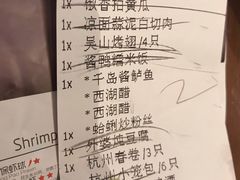 1x 傲香拍黄瓜
1x 凉面蒜泥白切肉
1x 吴山烤翅/4只
1x 酱鸭糯米饭
1x *千岛酱鲈鱼
*西湖醋
*西湖醋
1x *蛤蜊炒粉丝
1x 外婆炖豆腐
1x 杭州春卷/3只
1x 杭州小笼包/6只
Shrimp